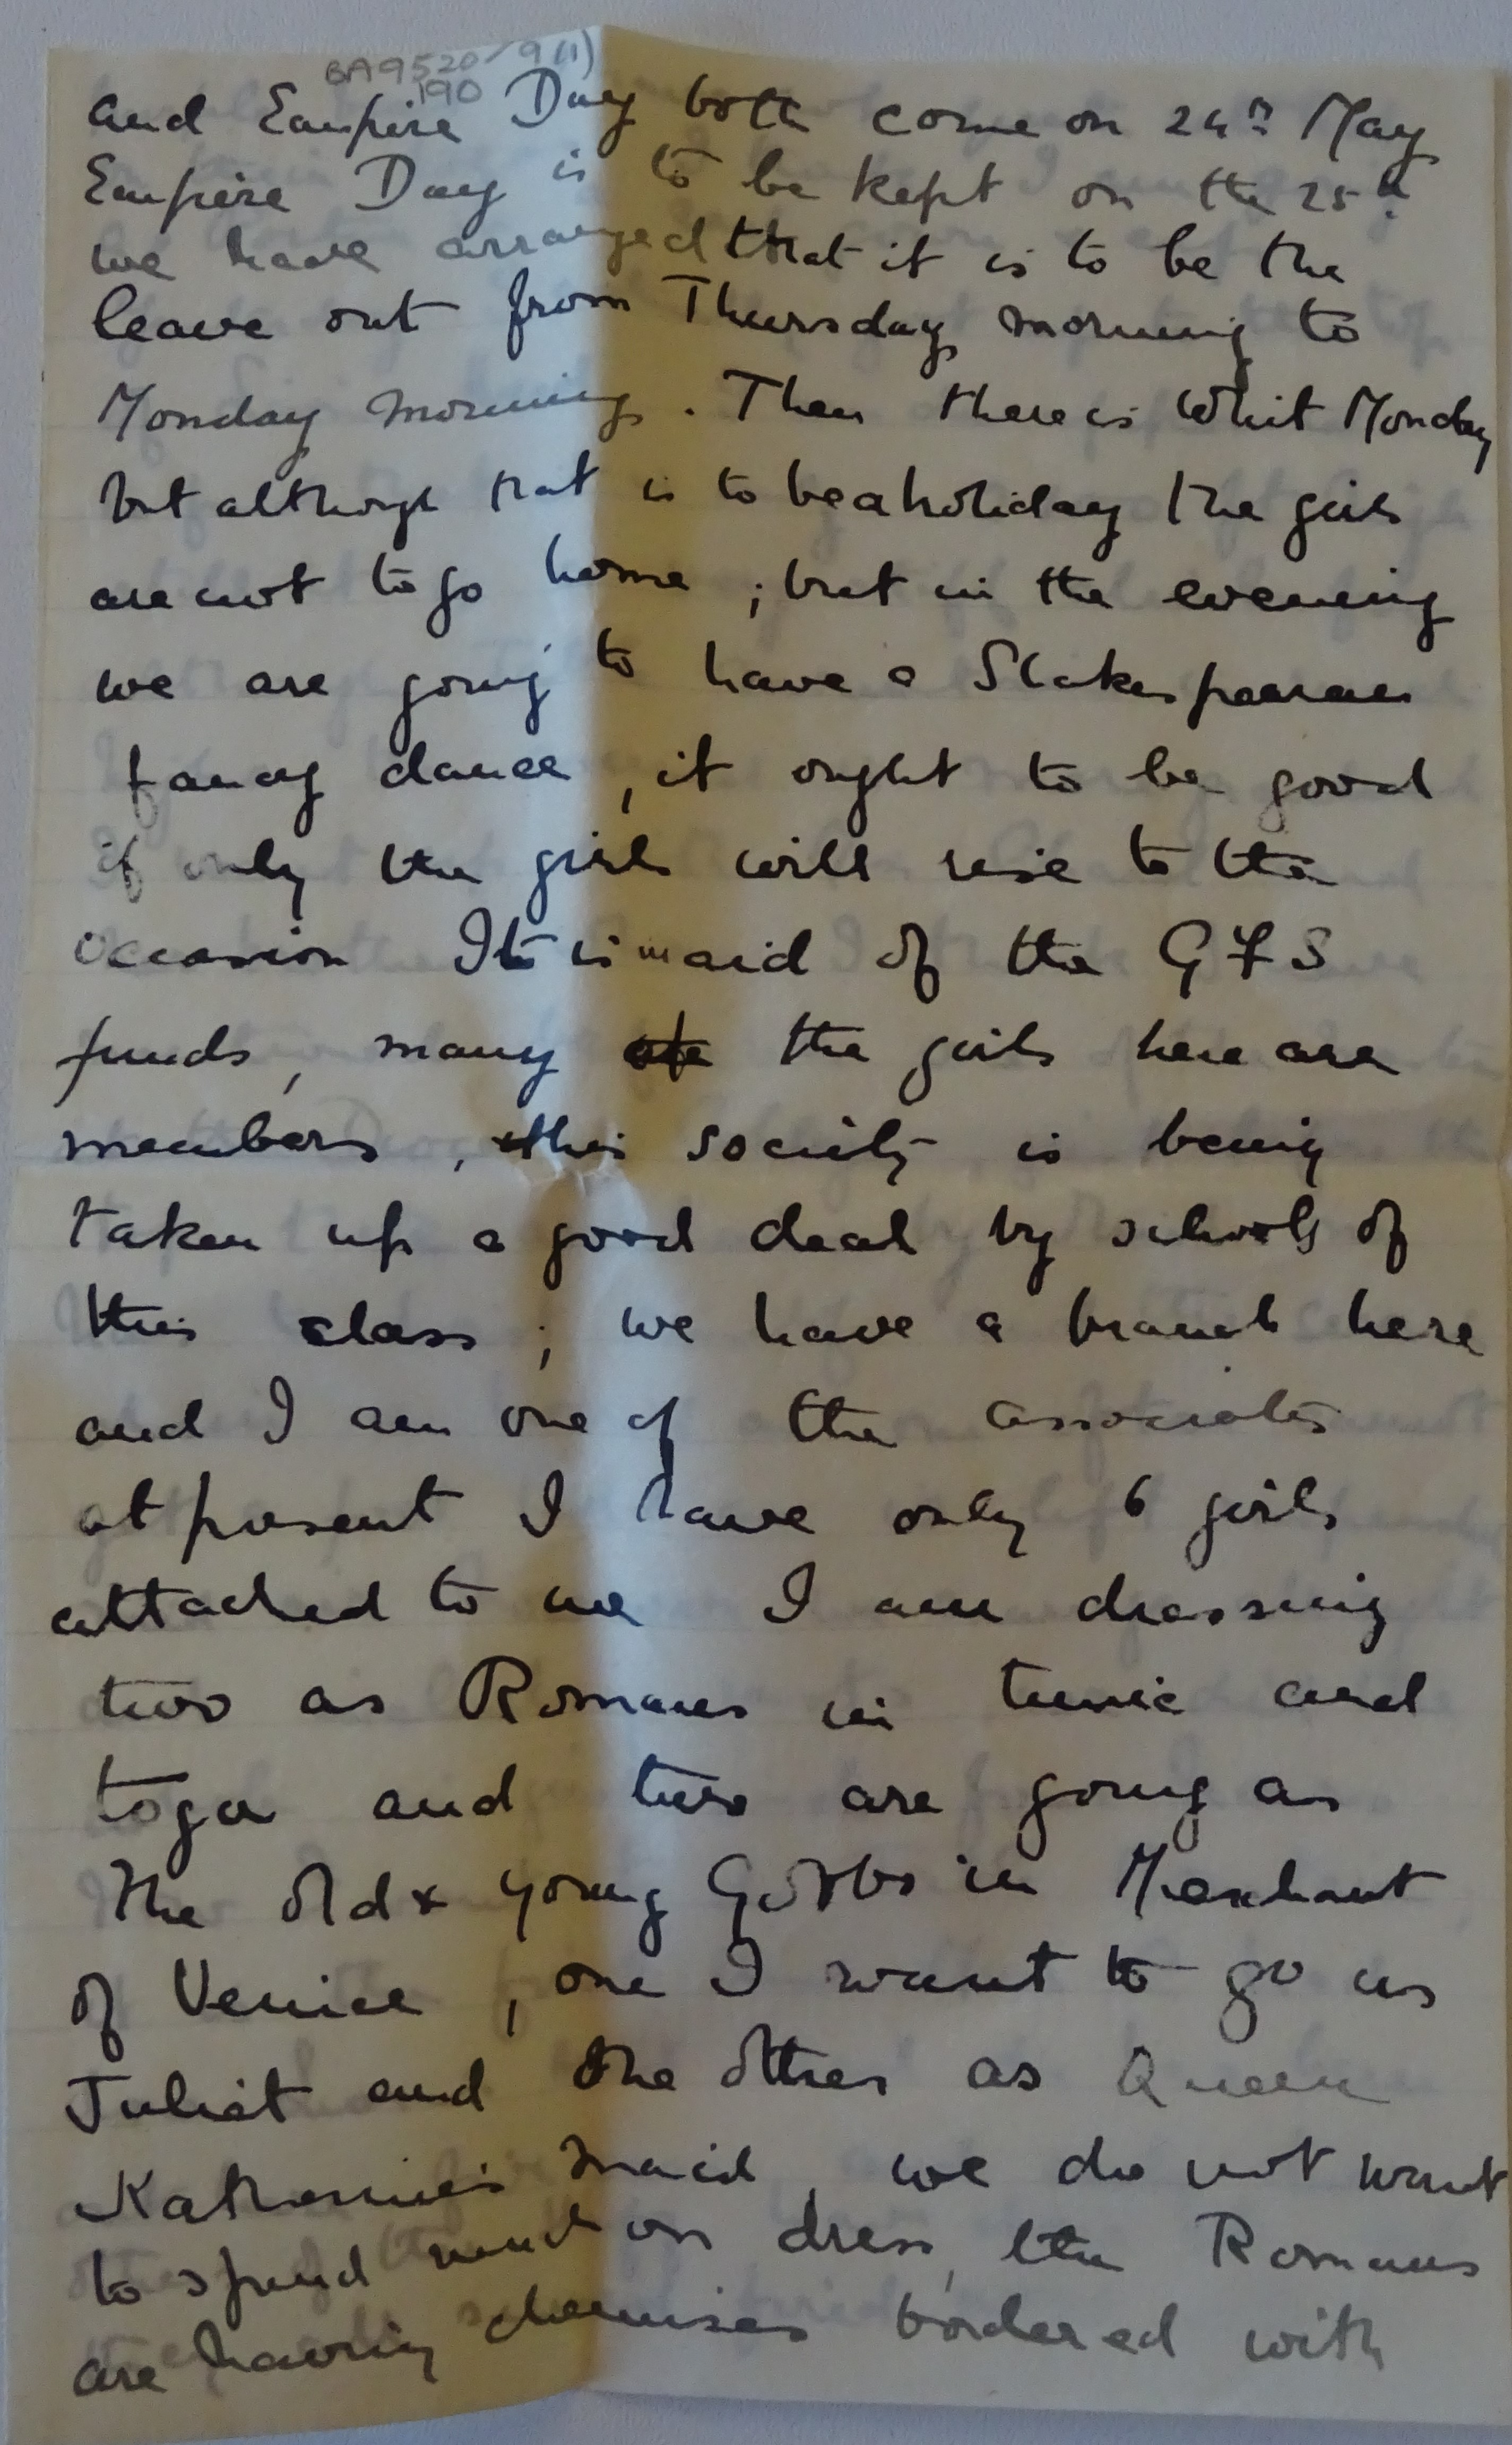 BA9520/9(1)
190
and Empire Day both come on 24th May
Empire Day is to be kept on the 25th
we have arranged that it is to be the
leave out from Thursday morning to
Monday morning. Then there is Whit Monday
but although that is to be a holiday the girls
are not to go home ; but in the evening
we are going to have a Shakespearean
fancy dance, it ought to be good
if only the girls will rise to the
occasion It is in aid of the GFS
funds, many of the girls here are
members, this society is being
taken up a good deal by schools of
this class ; we have a branch here
and I am one of the associates
at present I have only 6 girls
attached to me I am dressing
two as Romans in tunic and
toga and two are going as
The old & young Gobbo in Merchant
of Venice, one I want to go as
Juliet and the other as Queen
Katherine's maid, we do not want
to spend much on dress, the Romans
are having chemises bordered with